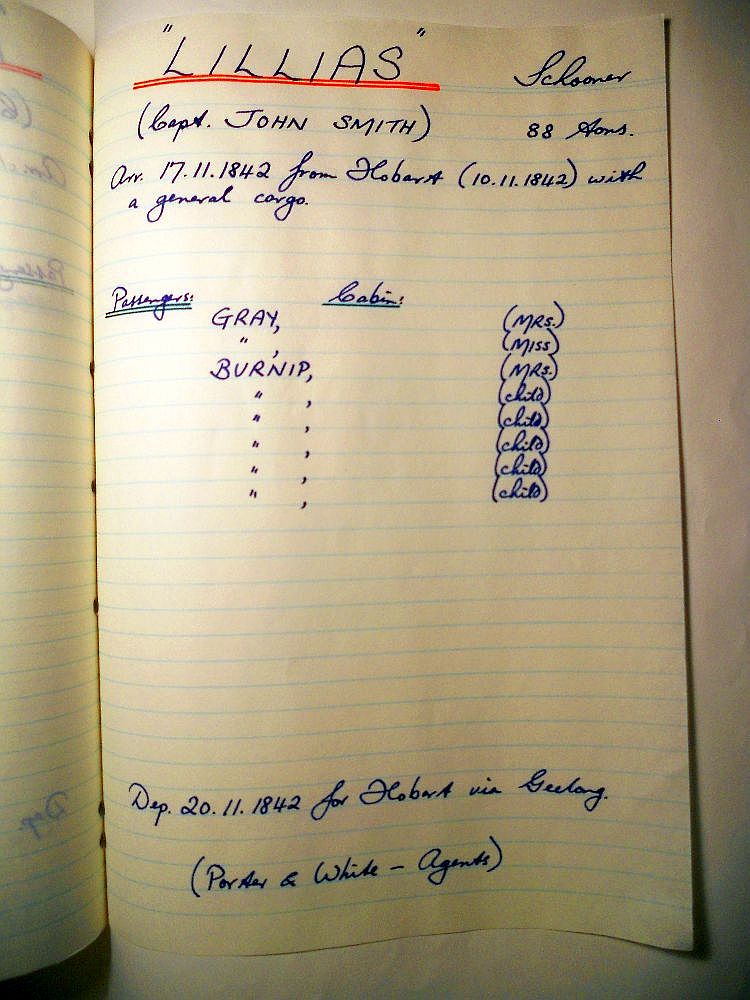 "LILLIAS" Schooner
(Capt. JOHN SMITH) 88 tons.
Arr. 17.11.1842 from Hobart (10.11.1842) with
a general cargo.
Passengers: Cabin:
GRAY, (MRS.)
" , (MISS)
BURNIP, (MRS.)
" , (child)
" , (child)
" , (child)
" , (child)
" , (child)
Dep. 20.11.1842 for Hobart via Geelong.
(Porter & White - Agents)